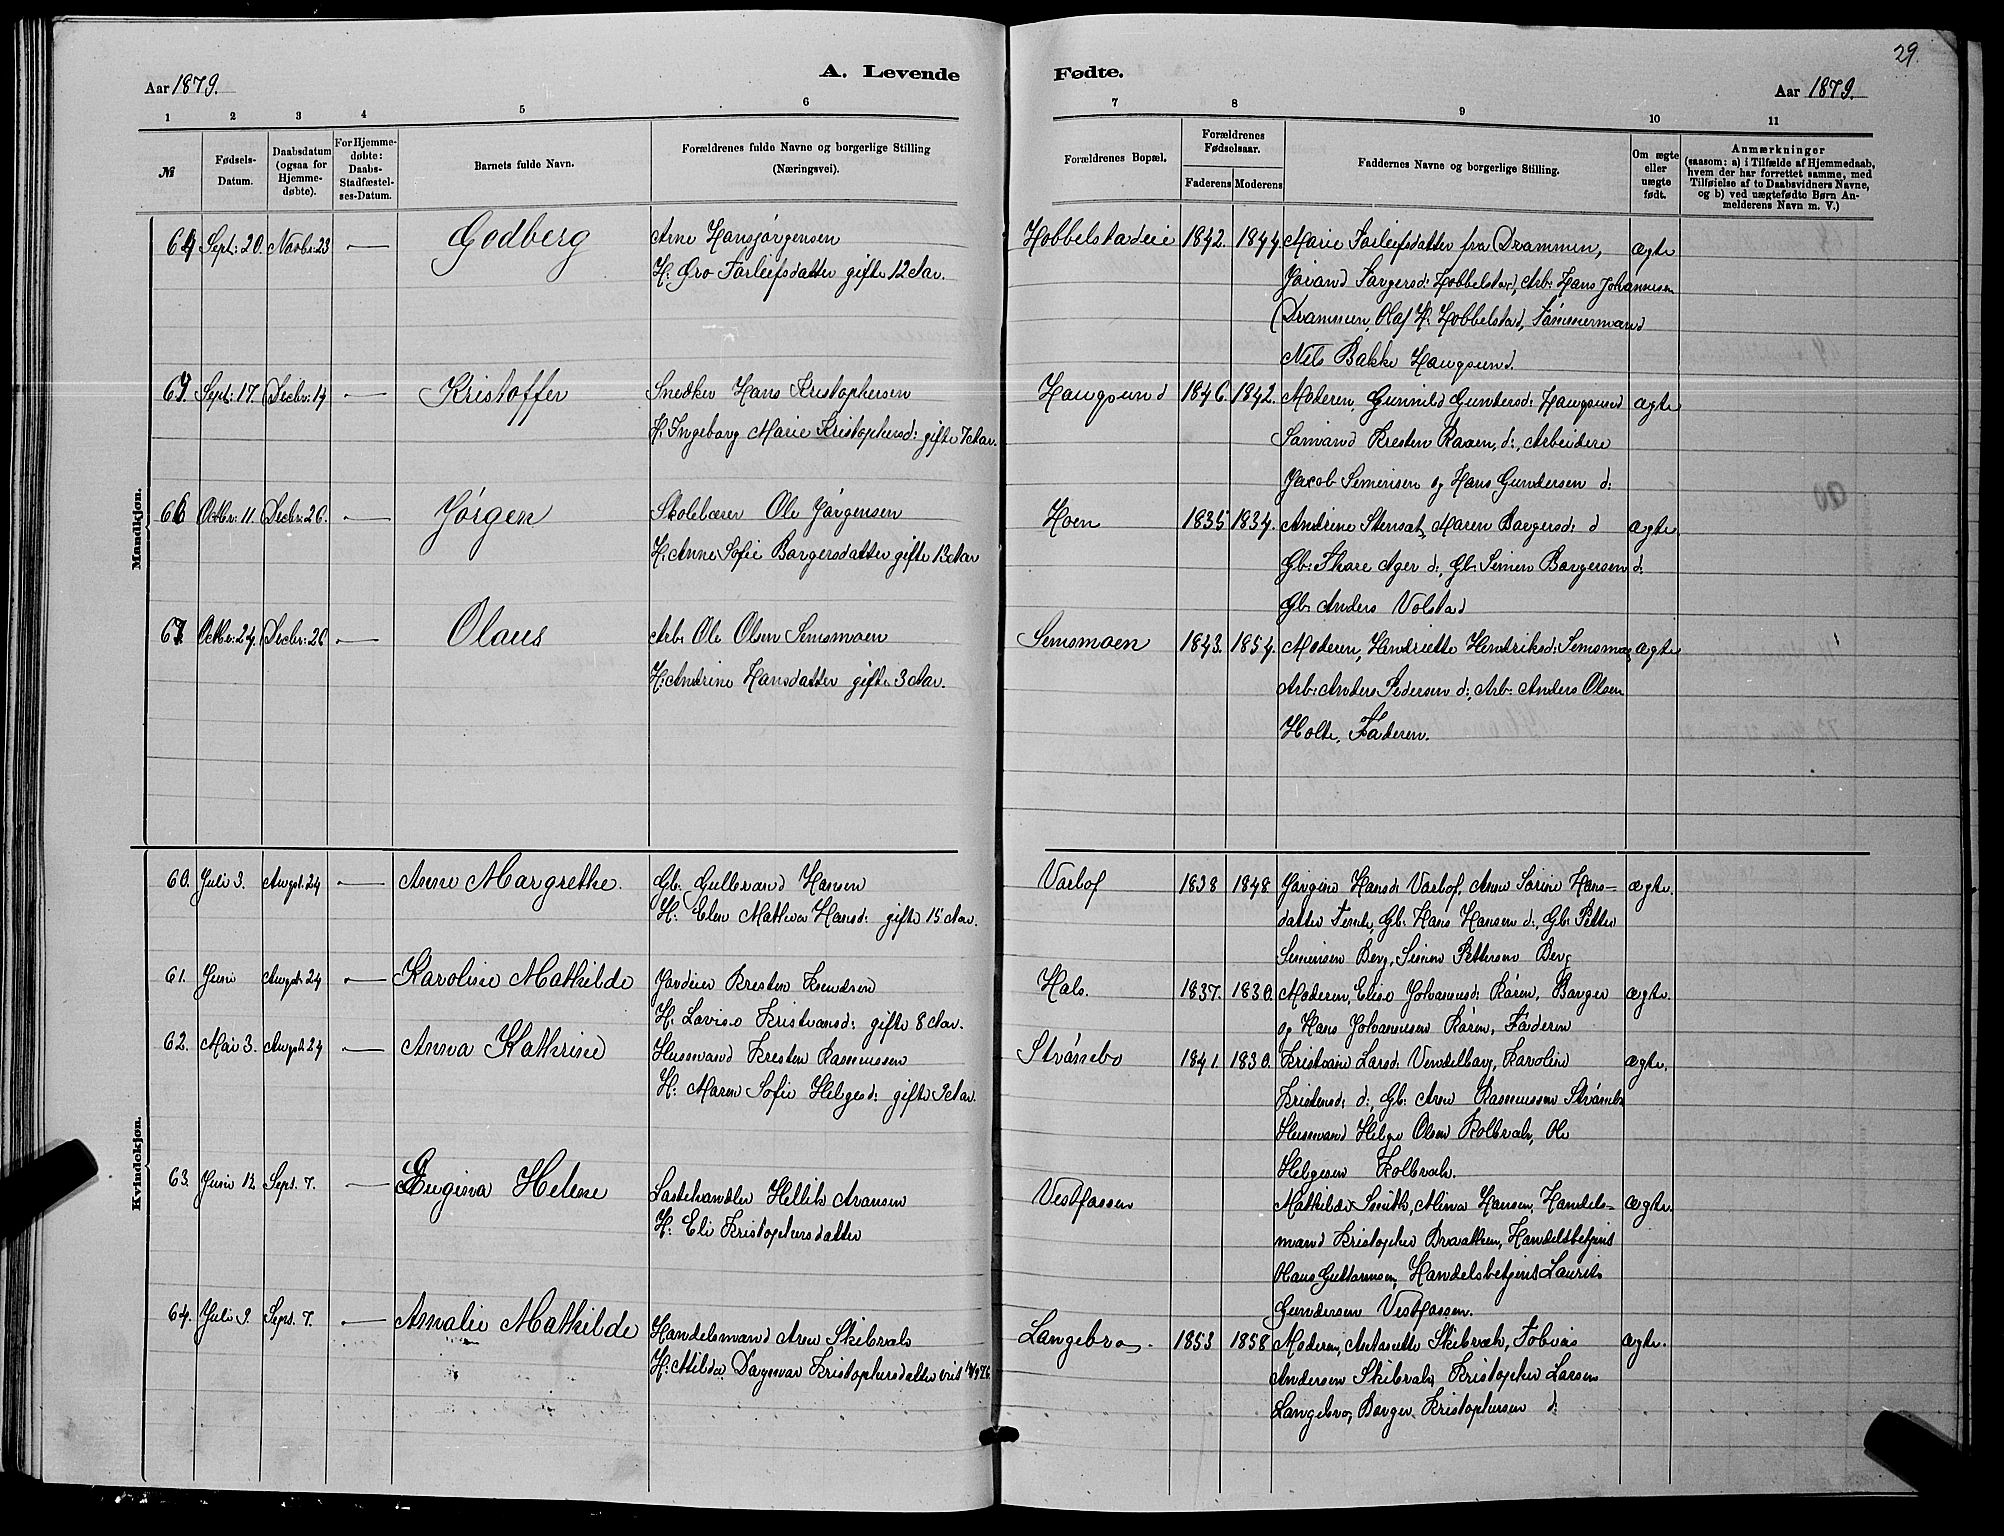 29.
A. Levende
Fødte.
Aar 1879.
Aar 1879.
1 2 3 4 5 6
7 8 9 10 11
№
Fødsels-
Datum.
Daabsdatum
(ogsaa for
Hjemme-
døbte).
For Hjemme-
døbte:
Daabs-
Stadfæstel-
ses-Datum.
Barnets fulde Navn.
Forældrenes fulde Navne og borgerlige Stilling
(Næringsvei).
Forældrenes Bopæl.
Forældrenes
Fødselsaar.
Faderens Moderens
Faddernes Navne og borgerlige Stilling.
Om ægte
eller
uægte
født.
Anmærkninger
(saasom: a) i Tilfælde af Hjemmedaab,
hvem der har forrettet samme, med
Tilføielse af to Daabsvidners Navne,
og b) ved uægtefødte Børn An-
melderens Navn m. V.)
Mandkjøn.
64 Sept: 20. Novbr: 23 — Godberg Arne Hansjørgensen Hobbelstadeie 1842. 1844 Marie Torleifsdatter fra Drammen, ægte
H: Gro Torleifsdatter gifte 12 Aar. Jørand Torgersd: Hobbelstad, Arb: Hans Johannesen
Drammen, Olaf H. Hobbelstad, Tømmermand
Nils Bakke Haugsund.
Sept: 17. Decbr: 14 — Kristoffer Snedker Hans Kristophersen Haugsund 1846. 1842. Moderen, Gunnild Gundersd: Haugsund ægte
H: Ingeborg Marie Kristophersd: gifte 7 Aar. Sømand Kresten Raaen, d:, Arbeidere
Jacob Simensen og Hans Gundersen d:
66 Octbr: 11. Decbr: 26. — Jørgen Skolelærer Ole Jørgensen Hoen 1835 1834. Andrine Stensat, Maren Borgersd: d ægte
H: Anne Sofie Borgersdatter gifte 13 Aar Gb: Thore Ager d:, Gb: Simen Borgersen d:
Gb: Anders Volstad
67 Octbr: 24. Decbr: 26 — Olaus Arb: Ole Olsen Semsmoen Semsmoen 1843. 1854. Moderen, Henriette Hendriksd: Semsmoe, ægte
H: Andrine Hansdatter gifte 3 Aar. Arb: Anders Pedersen d:, Arb: Anders Olsen
Holte, Faderen.
Kvindekjøn.
60. Juli 3. Augst. 24 — Anne Margrethe. Gb: Gulbrand Hansen Varlof 1838 1848 Jørgine Hansd: Varlof, Anne Sorine Hans= ægte.
H: Elen Mathea Hansd: gifte 15 Aar. datter Temte, Gb: Hans Hansen d:, Gb: Petter
Simensen Berg, Simon Pettersen Berg
61. Juni Augst. 24 — Karoline Mathilde Kresten Knudsen Hals. 1837. 1830. Moderen, Elise Johannesd: Røren, Borger ægte.
H: Lovise Kristiansd: gifte 8 Aar. og Hans Johannesen Røren, Faderen
62. Mai 3. Augst. 24 — Anna Kathrine Husmand Kresten Rasmussen Strømbo 1841. 1830. Kristiane Larsd: Vendelborg, Karoline ægte.
H: Maren Sofie Helgesd: gifte 3 Aar. Kristensd: d:, Gb: Aren Rasmussen Strømbo
Husmand Helge Olsen Kolbræk, Ole
Helgesen Kolbræk.
63. Juni 12 Sept. 7. — Eugina Helene Lastehandler Hellik Aronsen Vestfossen Mathilde Smith, Alma Hansen, Handels= ægte.
H: Eli Kristophersdatter mand Kristopher Braathen, Handelsbetjent
Hans Guttormsen, Handelsbetjent Laurits
Gundersen Vestfossen.
64. Juli 9. Sept. 7. — Amalie Mathilde Handelsmand Aren Skibræk Langebro. 1853 1858 Moderen, Antonette Skibræk, Tobias ægte.
H: Milda Dagmar Kristophersdatter Andersen Skibræk, Kristopher Larsen
Langebro, Borger Kristophersen d: